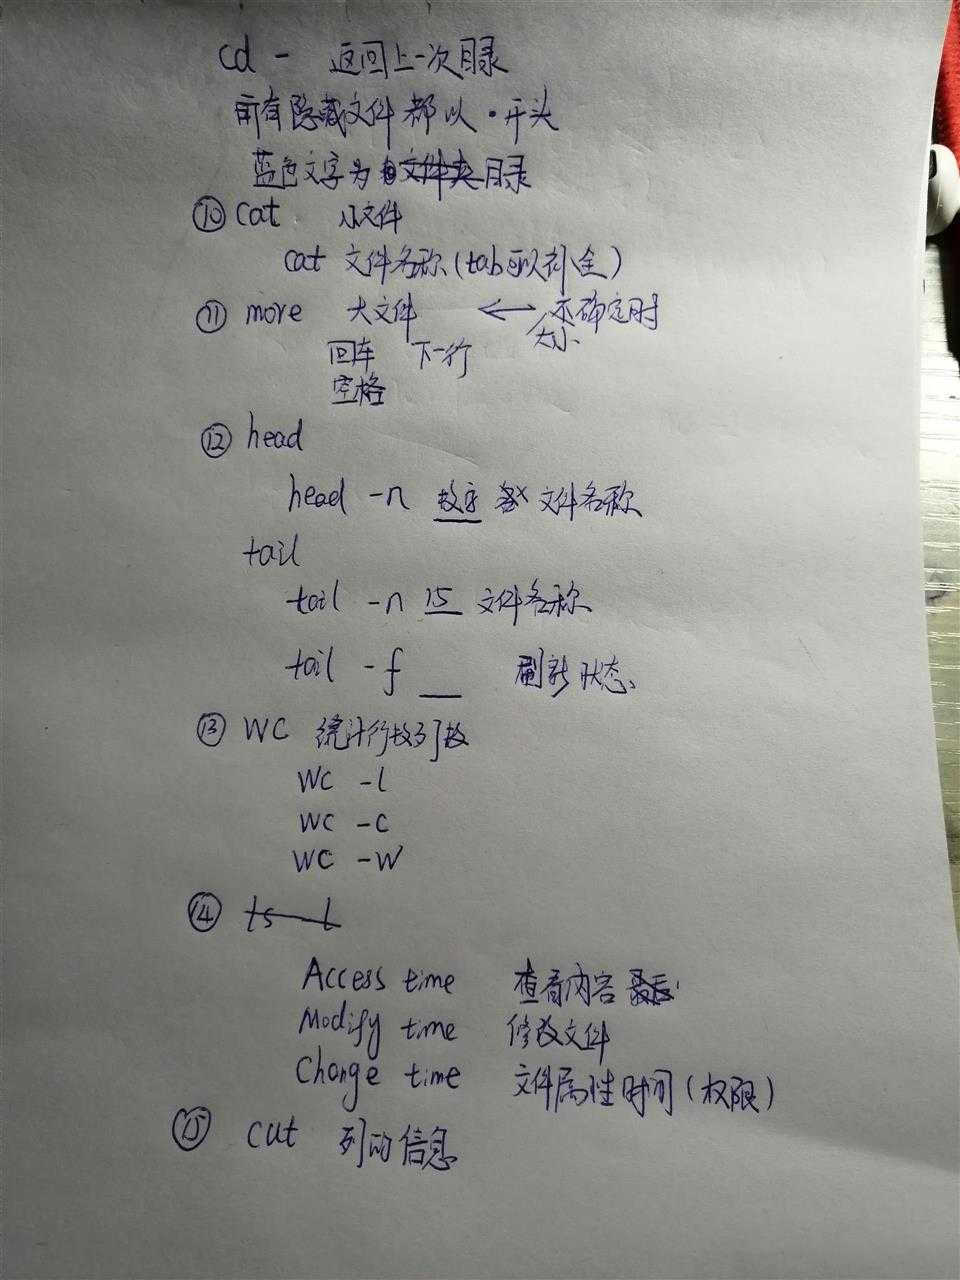 cd - 返回上一次目录
所有隐藏文件都以 · 开头
蓝色文字为目录
⑩ cat 小文件
cat 文件名称(tab可以补全)
⑪ more 大文件 ←→ 不确定时
大小
回车 下一行
空格
⑫ head
head -n 数字 文件名称
tail
tail -n 15 文件名称
tail -f __ 刷新状态
⑬ wc 统计行数列数
wc -l
wc -c
wc -w
⑭
Access time 查看内容
Modify time 修改文件
Change time 文件属性时间(权限)
⑮ cut 列的信息